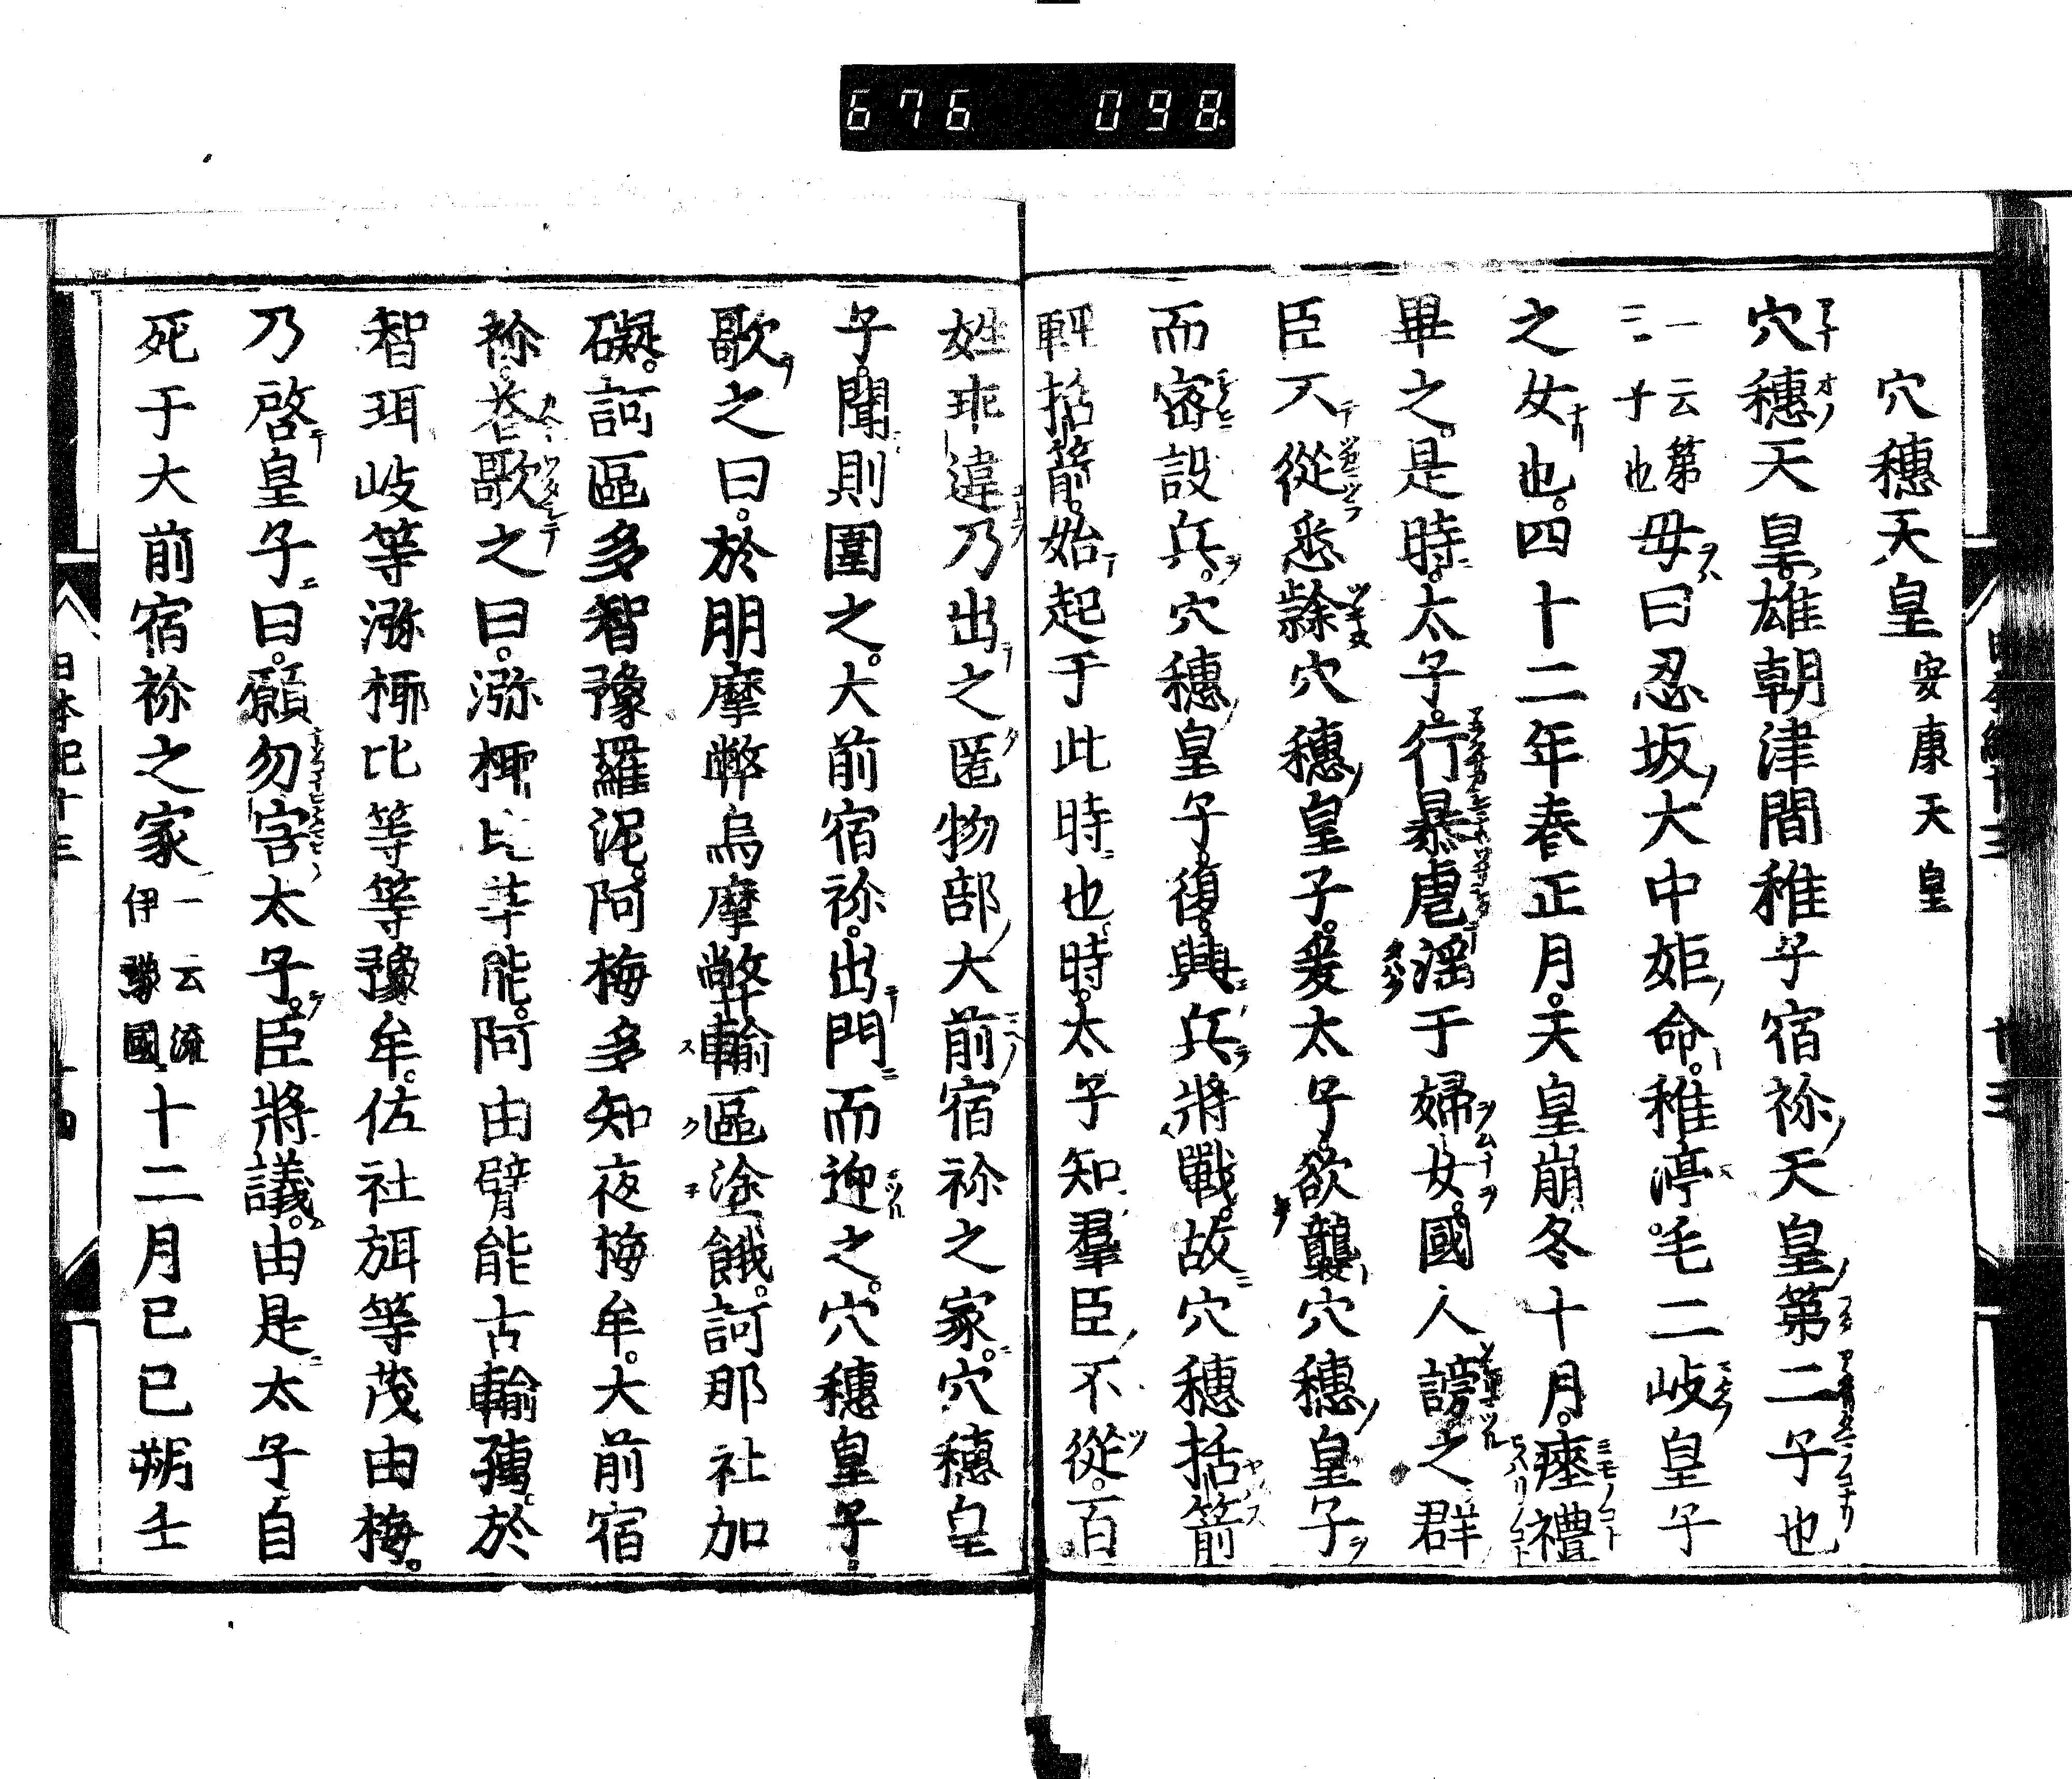 676 098
穴穗天皇 安康天皇
穴穗天皇雄朝津間稚子宿祢天皇第二子也
一云第三子也母曰忍坂大中姫命稚渟毛二岐皇子
之女也。四十二年春正月。天皇崩冬十月。瘞禮
畢之。是時。太子。行暴虐滛于婦女。國人謗之群
臣不從悉隸穴穗皇子。爰太子。欲襲穴穗皇子
而密設兵。穴穗皇子。復。興兵將戰。故穴穗括箭
輕括箭。始起于此時也。時。太子知羣臣不從。百
姓乖違乃出之匿物部大前宿祢之家。穴穗皇
子。聞則圍之。大前宿祢。出門而迎之。穴穗皇子
歌之曰。於朋摩弊烏摩弊輸區塗餓。訶那社加
礙。訶區多智豫羅泥。阿梅多知夜梅牟。大前宿
祢。答歌之曰。瀰椰比等能。阿由臂能古輸孺。於
智珥岐等瀰椰比等等豫牟。佐社弭等茂由梅。
乃啓皇子曰。願勿害太子。臣將議。由是太子自
死于大前宿祢之家 一云流伊豫國 十二月己巳朔壬
日本紀十三